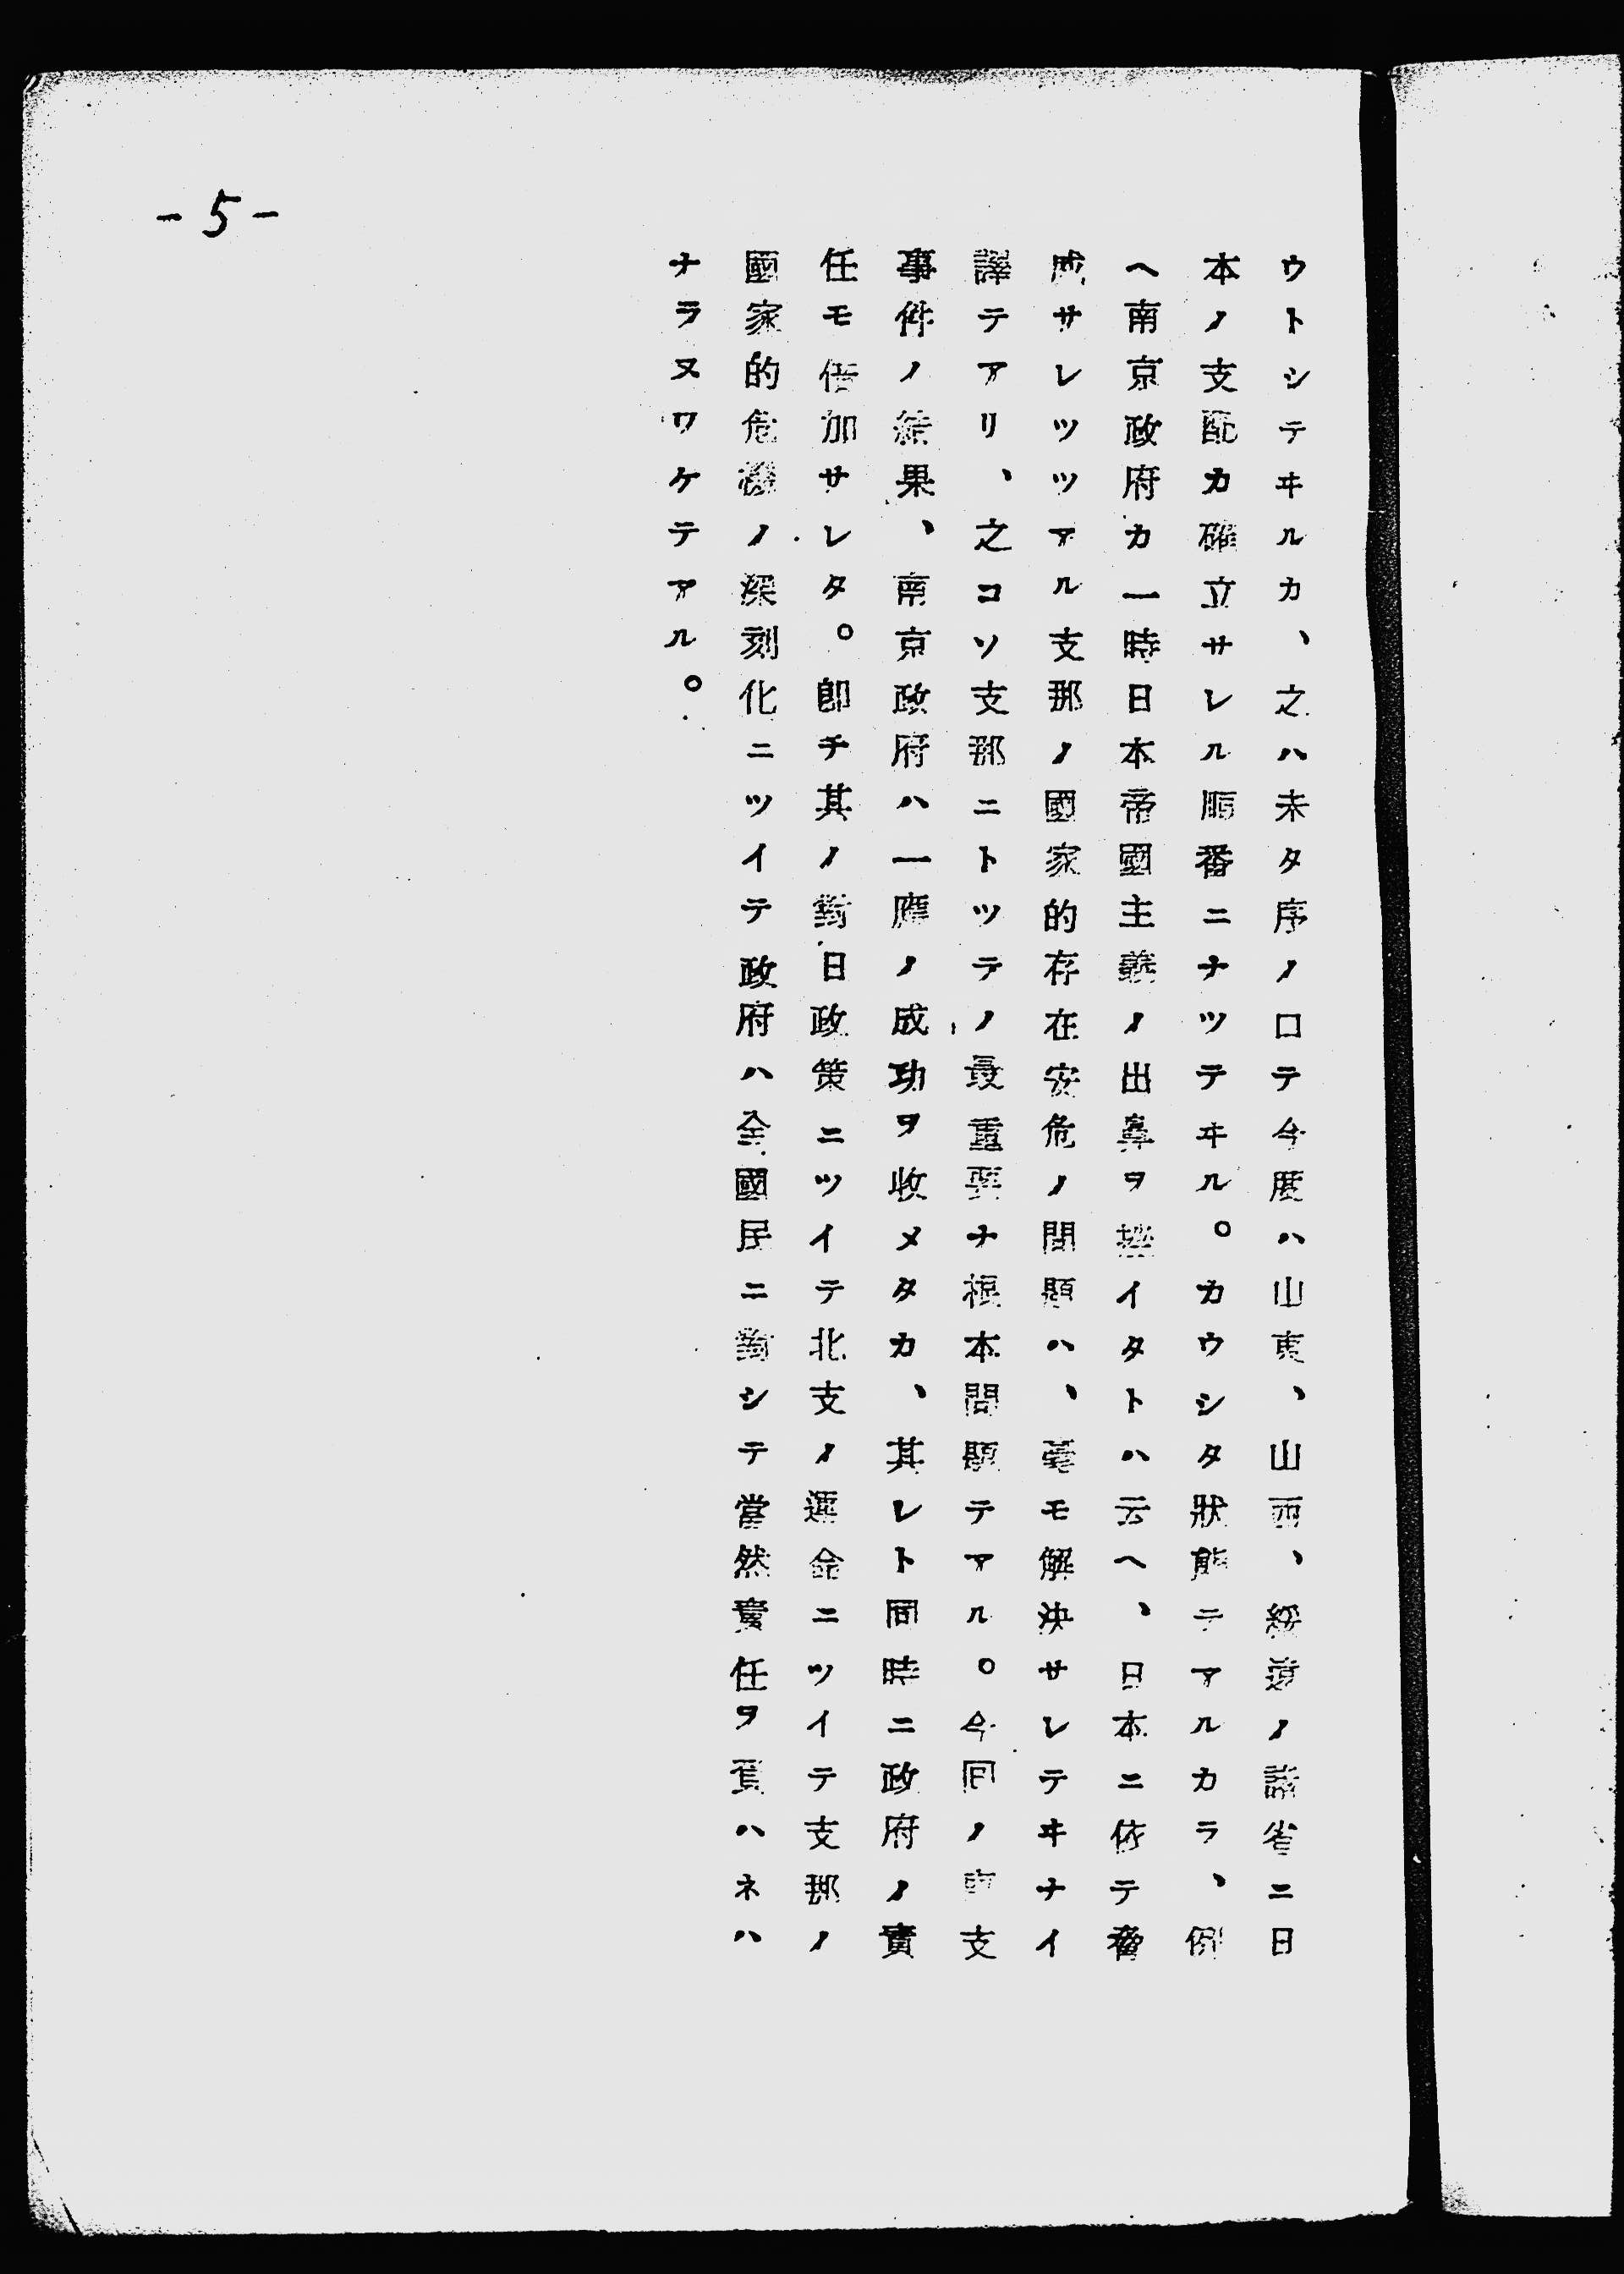 -5-
ウトシテヰルカ、之ハ未タ序ノ口テ今度ハ山東、山西、綏遠ノ諸省ニ日
本ノ支配カ確立サレル順番ニナツテヰル。カウシタ狀態テアルカラ、例
ヘ南京政府カ一時日本帝國主義ノ出鼻ヲ挫イタトハ云ヘ、日本ニ依テ脅
威サレツツアル支那ノ國家的存在安危ノ問題ハ、毫モ解決サレテヰナイ
譯テアリ、之コソ支那ニトツテノ最重要ナ根本問題テアル。今回ノ東支
事件ノ結果、南京政府ハ一應ノ成功ヲ收メタカ、其レト同時ニ政府ノ責
任モ倍加サレタ。卽チ其ノ對日政策ニツイテ北支ノ運命ニツイテ支那ノ
國家的危機ノ深刻化ニツイテ政府ハ全國民ニ對シテ當然責任ヲ負ハネハ
ナラヌワケテアル。